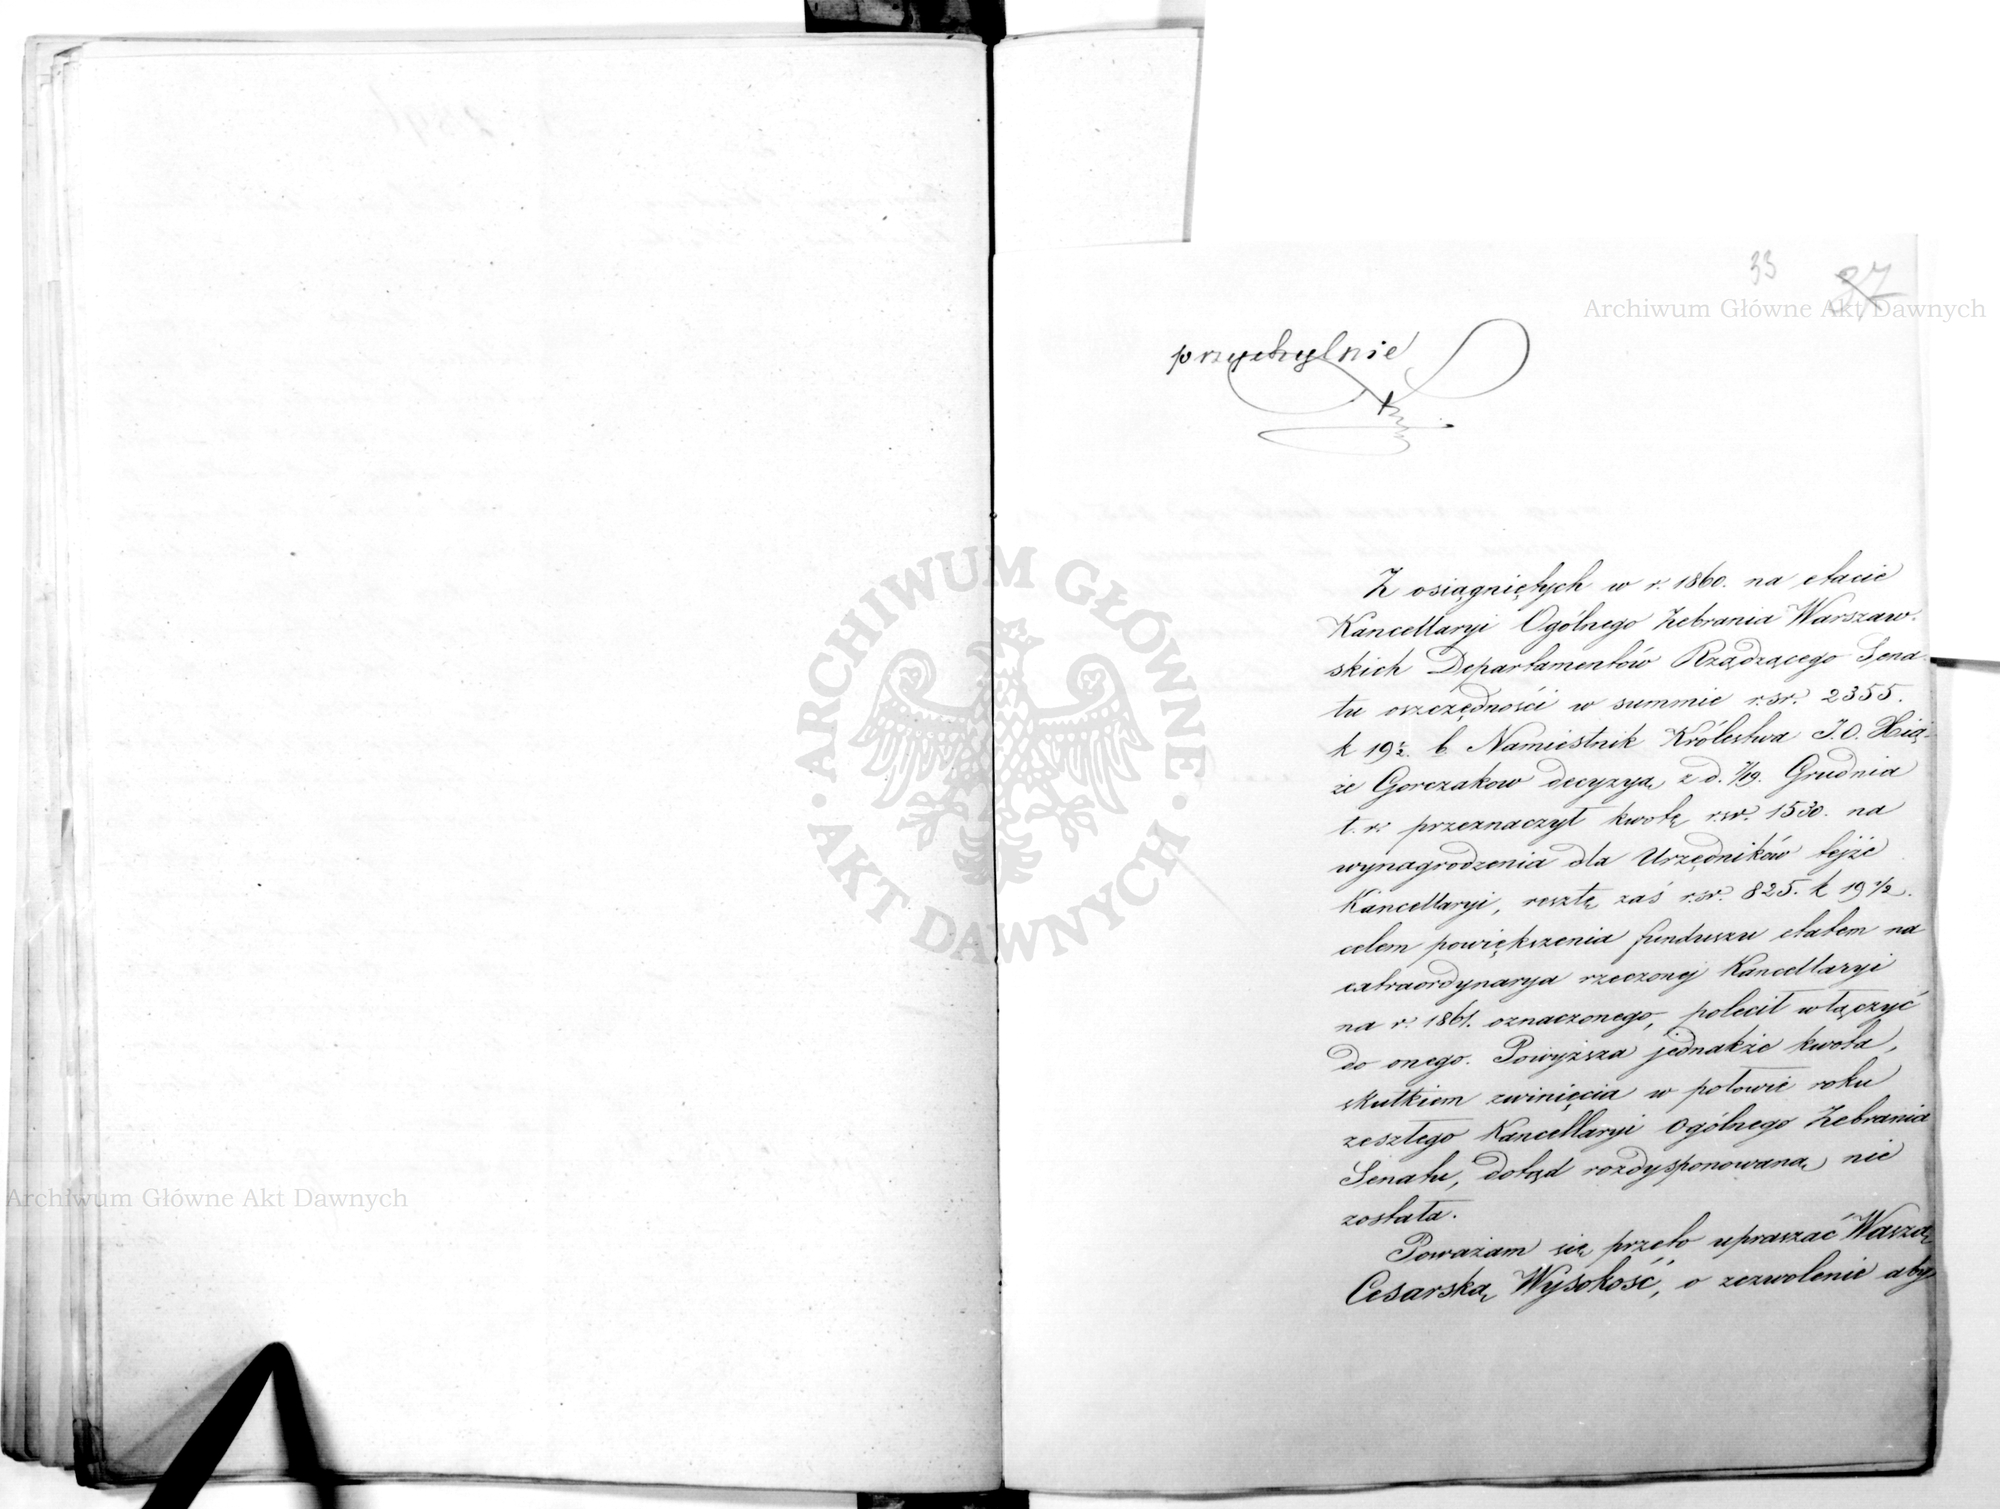 33
37
Archiwum Główne Akt Dawnych
przychylnie
Z osiągniętych w r. 1860. na etacie
Kancellaryi Ogólnego Zebrania Warszaw-
skich Departamentów Rządzącego Sena-
tu oszczędności w summie rsr. 2355.
k 19½. b. Namiestnik Królestwa J.O. Xią-
że Gorczakow decyzyą z d. 7/19. Grudnia
t. r. przeznaczył kwotę rsr. 1530. na
wynagrodzenia dla Urzędników tejże
Kancellaryi, resztę zaś rsr. 825. k 19½.
celem powiększenia funduszu etatem na
extraordynarya rzeczonej Kancellaryi
na r. 1861. oznaczonego, polecił włączyć
do onego. Powyższa jednakże kwota,
skutkiem zwinięcia w połowie roku
zeszłego Kancellaryi Ogólnego Zebrania
Senatu, dotąd rozdysponowaną nie
została.
Poważam się przeto upraszać Waszą
Cesarską Wysokość, o zezwolenie aby
ARCHIWUM GŁÓWNE
AKT DAWNYCH
Archiwum Główne Akt Dawnych